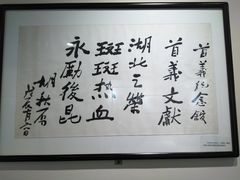 首义纪念馆
首義文獻
湖北之榮
斑斑热血
永勵後昆
胡秋原